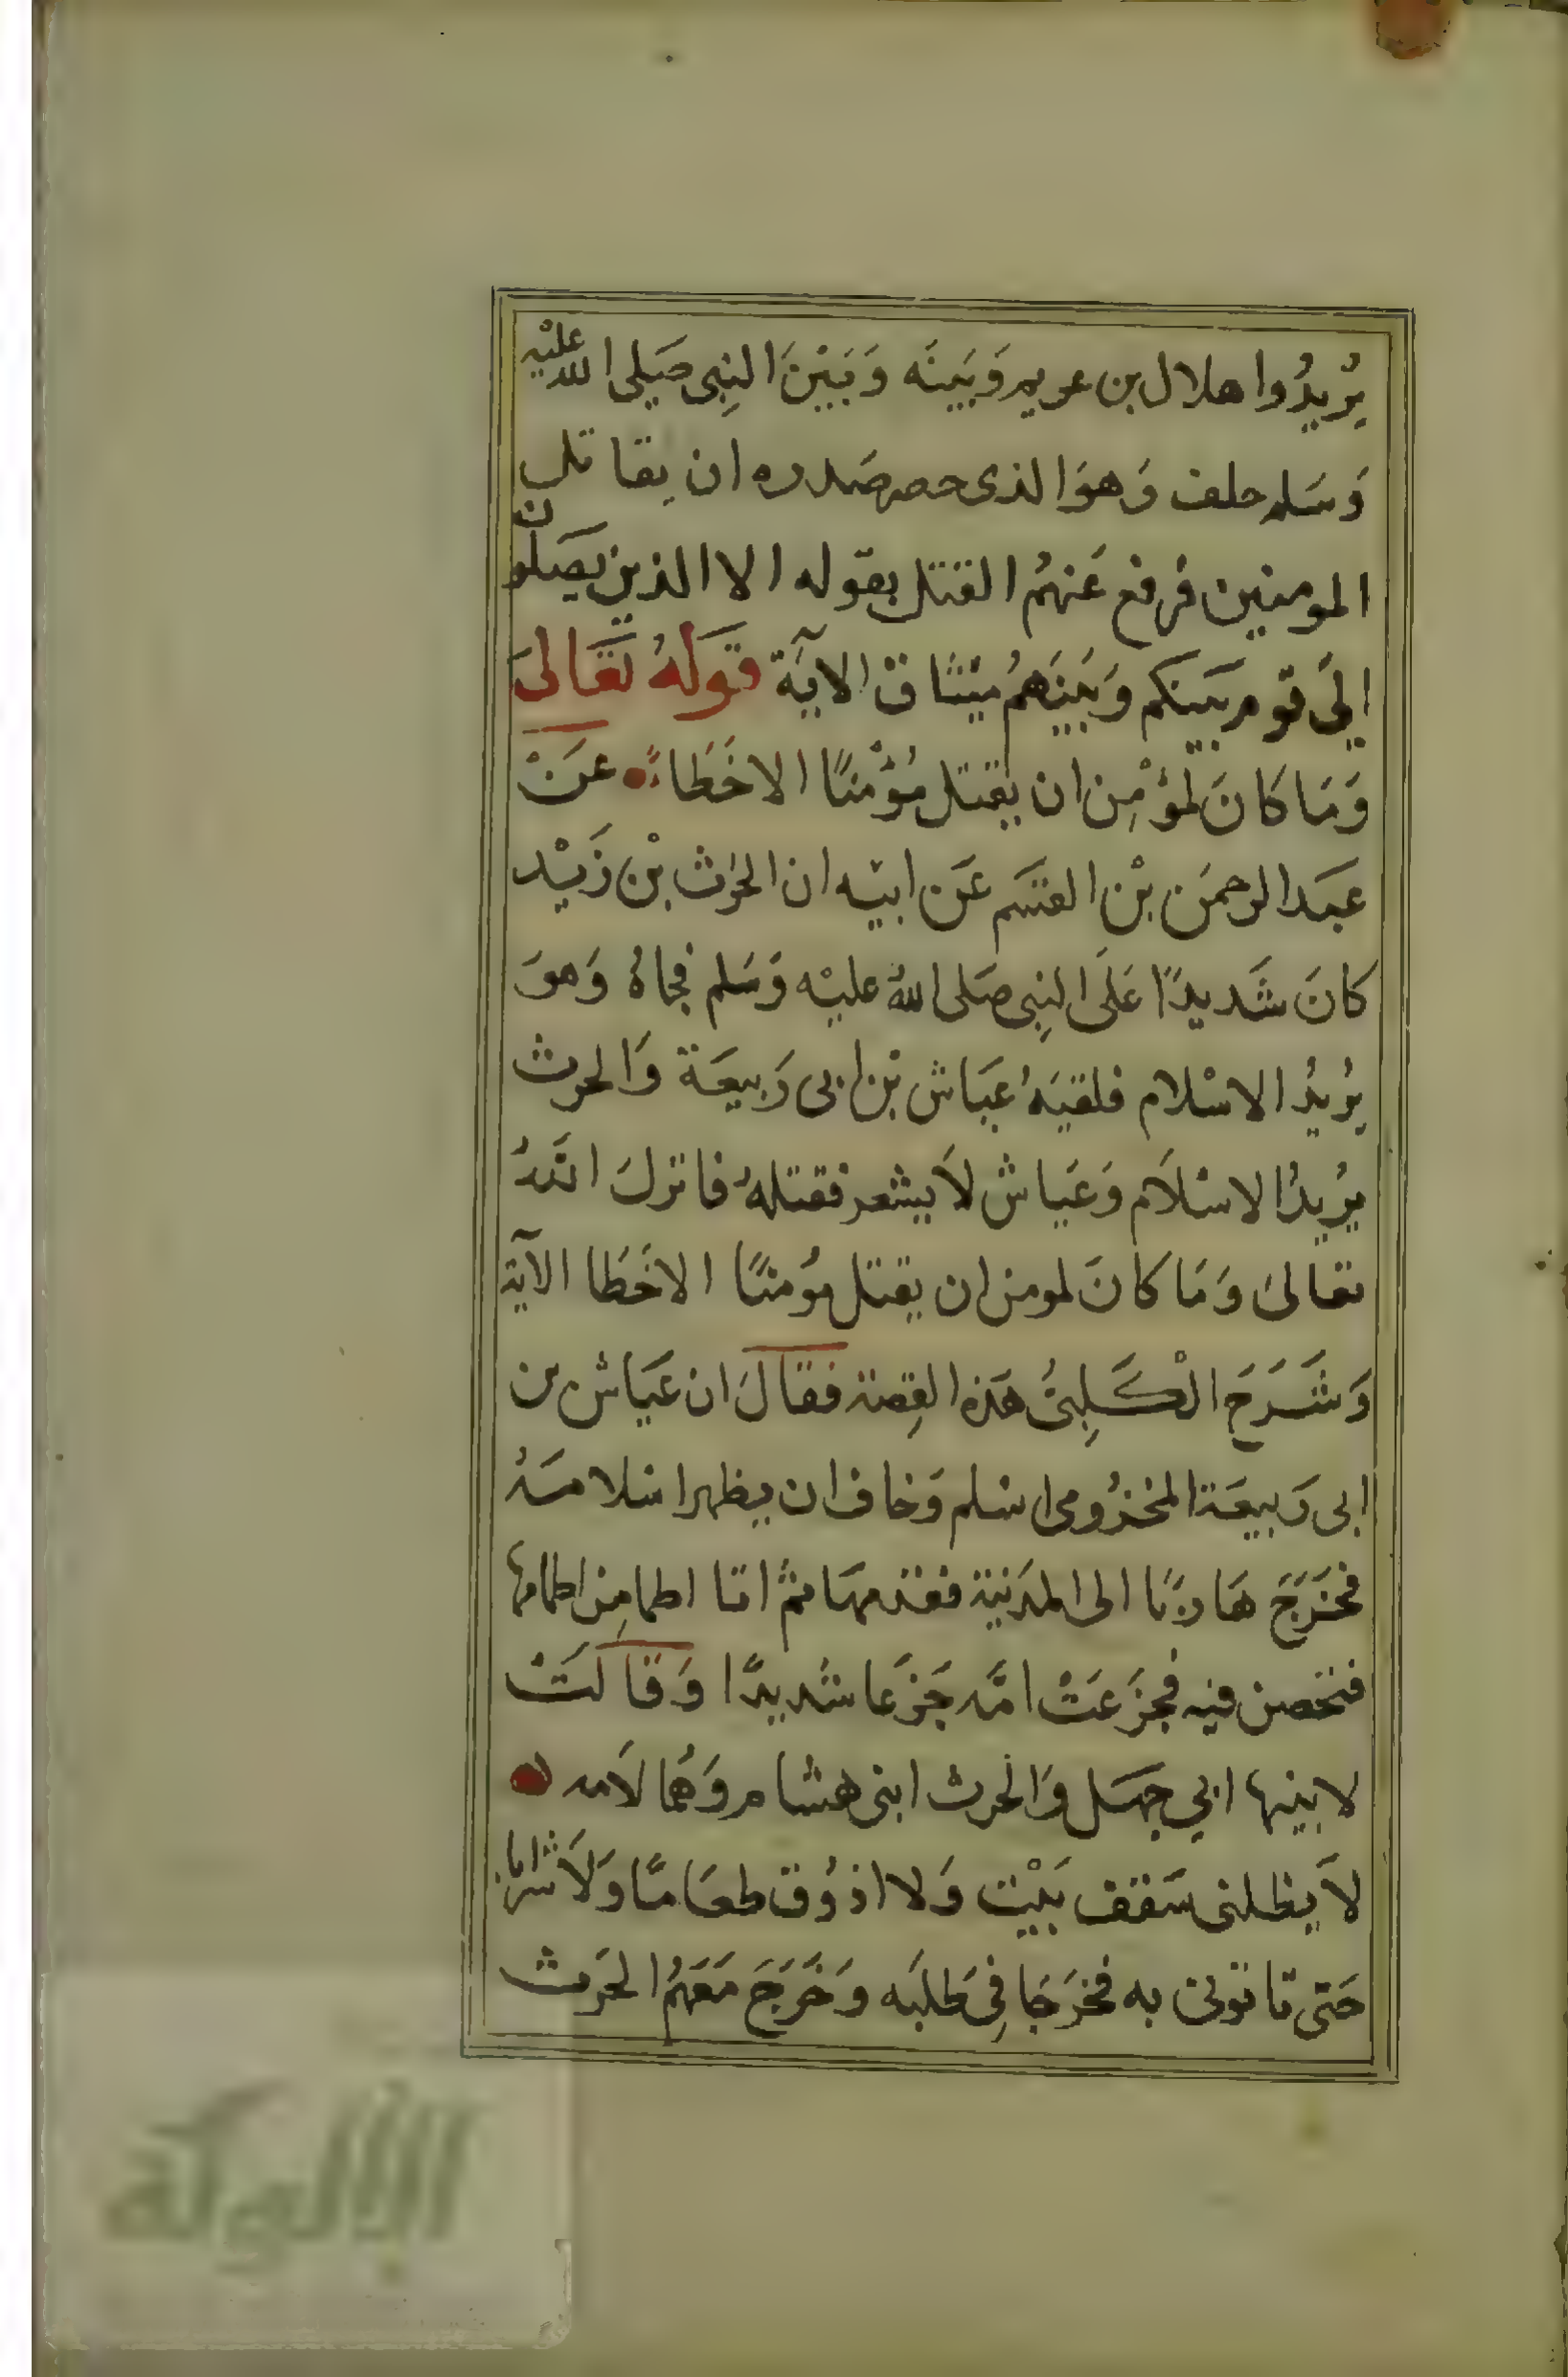 يُرِيدُوا هلال بن عويمر وَبَينَه وَبَيْنَ النِبى صَلى الله عليْه
وَسَلم حلف وَهوَ الذى حصر صَدره ان يقاتل
المومنين فرفع عَنهُم القتل بقوله الا الذين يصَلون
اِلَى قوم بَينكم وَبَينَهمُ ميثاق الآيَة قَولُهُ تَعَالىَ
وَمَا كانَ لمؤْمِن ان يقتل مُؤْمنًا الا خَطَاءً عَنْ
عبَد الرحمَن بْن القسَم عَن ابيْه ان الحٰرث بْن زَيْد
كانَ شَديدًا عَلَى النِبى صَلى اللهُ عليْه وَسَلم فجاءُ وَهوَ
يُرِيدُ الاسْلام فلقيَهُ عَيَاش بْن ابى رَبيعَة وَالحرث
يُرِيدُ الاسْلَام وَعَيَاش لَا يشعر فقتلهُ فانزلَ اللَّهُ
تعَالىَ وَمَا كانَ لمومن ان يقتل مُؤمنًا الا خَطَا الآية
وَشَرَحَ الْكَلِبىُ هَذه القِصة فقَالَ ان عَيَاش بن
ابى رَبيعَة المخزُومى اسْلم وَخاف ان يظهر اسْلامَهُ
فخَرَجَ هَاربًا الى المدَينة فقدمهَا ثم اتا اطما مِن اطامها
فتحَصن فيه فجزَعَتْ امَّه جَزعَا شديدًا وَقالَتْ
لابنيها ابي جهَل وَالحرث ابنى هشام وَهُمَا لاَمه
لَا يظلنى سَقف بَيْت وَلا اذوُق طعَامًا وَلَا شرابا
حَتى تاتونى به فخرَجَا فِى طَلبَه وَخَرَجَ مَعَهُم الحَرث
الألوكة